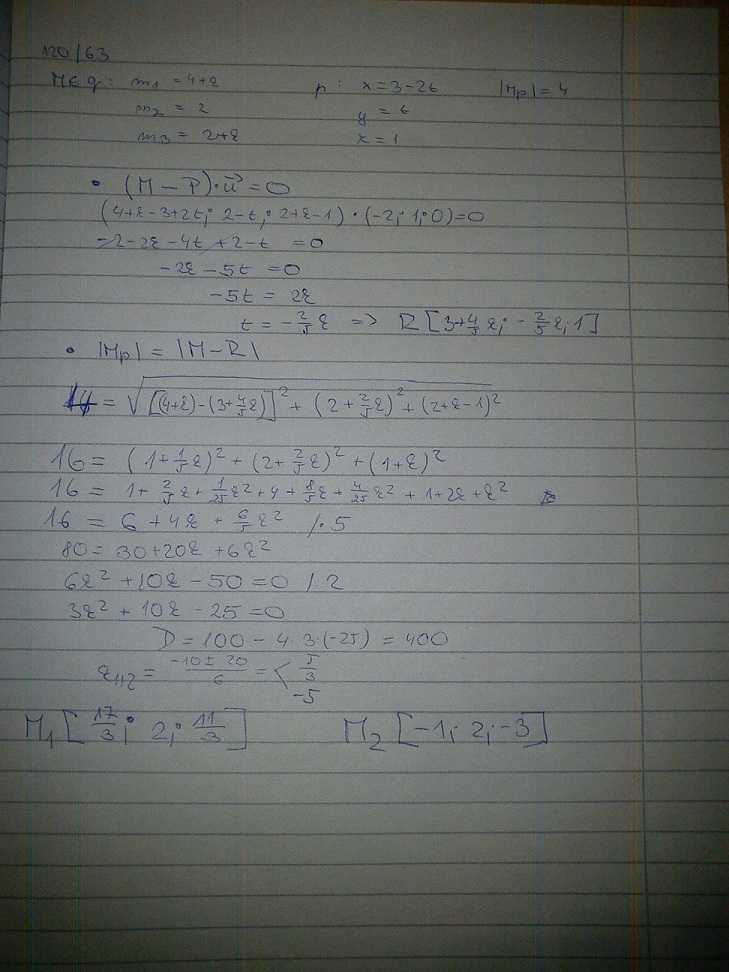 120/63
M∈q: m₁ = 4+r p: x = 3-2t |Mp| = 4
m₂ = 2 y = t
m₃ = 2+r z = 1
• (M-P)·u⃗ = 0
(4+r-3+2t; 2-t; 2+r-1)·(-2; 1; 0)=0
-2-2r-4t+2-t = 0
-2r-5t = 0
-5t = 2r
t = -2/5 r => R[3+4/5 r; -2/5 r; 1]
• |Mp| = |M-R|
4 = √[(4+r)-(3+4/5 r)]² + (2+2/5 r)² + (2+r-1)²
16 = (1+1/5 r)² + (2+2/5 r)² + (1+r)²
16 = 1+2/5 r+1/25 r²+4+8/5 r+4/25 r²+1+2r+r²
16 = 6+4r+6/5 r² /·5
80 = 30+20r+6r²
6r²+10r-50=0 /2
3r²+10r-25=0
D = 100-4·3·(-25) = 400
r₁,₂ = (-10±20)/6 = < 5/3
-5
M₁[17/3; 2; 11/3] M₂[-1; 2; -3]